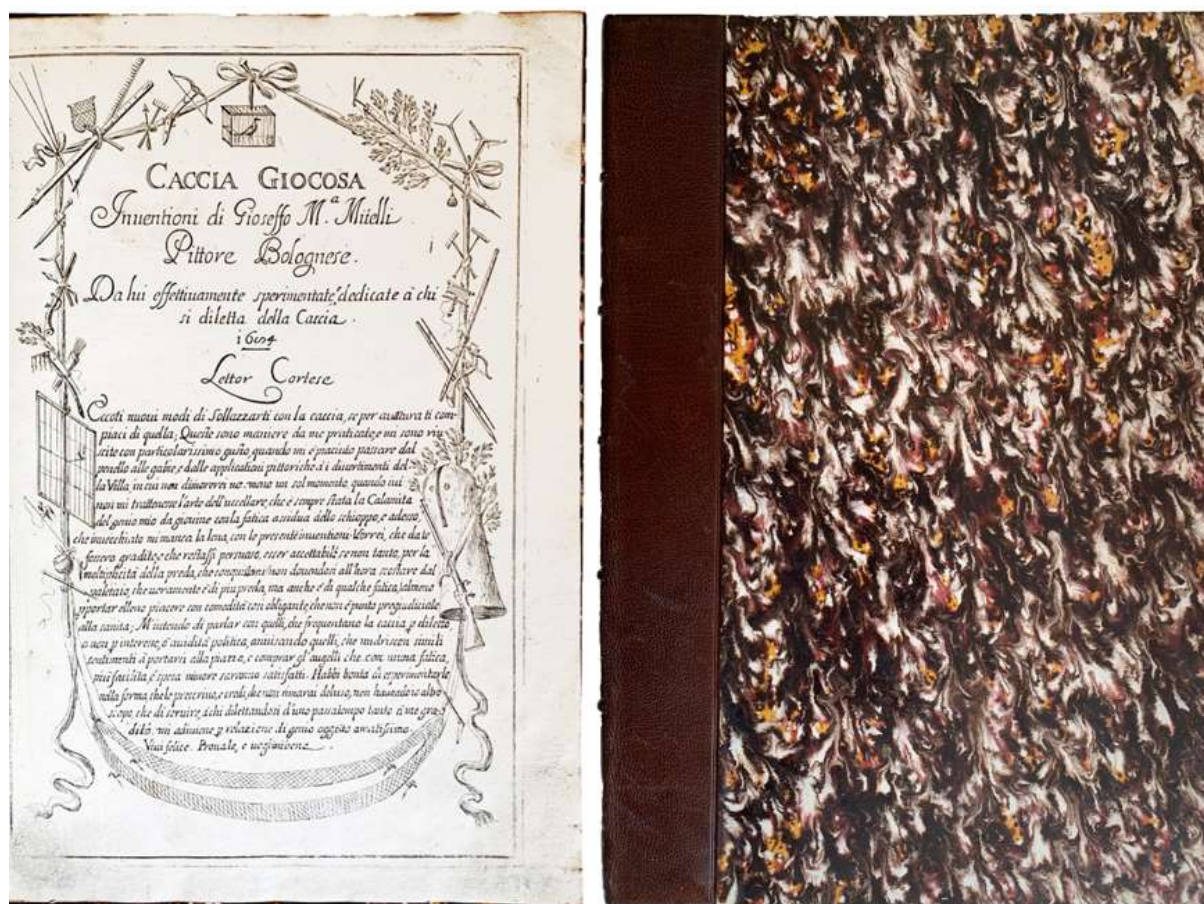 CACCIA GIOCOSA
Inuentioni di Gioseffo M.ª Mitelli
Pittore Bolognese.
Da lui effettiuamente sperimentate, e dedicate à chi
si diletta della Caccia.
Lettor Cortese
Eccoti nuoui modi di Sollazzarti con la caccia, se per auuentura ti com-
piaci di quella; Queste sono maniere da me praticate, e mi sono riu
scite con particolarissimo gusto, quando mi è piaciuto passare dal
penello alle gabie, e dalle applicationi pittoriche à i diuertimenti del
la Villa, in cui non dimorerei ne meno un sol momento, quando iui
non mi trattenesse l'arte dell'uccellare, che è sempre stata la Calamita
del genio mio da giouine con la fatica assidua dello schioppo, e adesso,
che inuecchiato mi manca la lena, con le presenti inuentioni. Vorrei, che da te
fossero gradite, e che restassi persuaso, esser accettabili se non tanto, per la
moltiplicità della preda, che conquistani non douendosi all'hora scostare dal
paletaio, che ueramente è di più preda, ma anche è di qualche fatica, almeno
apportar elleno piacere con comodità così obligante, che non è punto pregiudiciale
alla sanità; M'intendo di parlar con quelli, che frequentano la caccia p diletto
e non p interesse, ò auidità politica, auuisando quelli, che nudriscon simili
sentimenti à portarsi alla piazza, e comprar gl'augelli che con niuna fatica,
più facilità, e spesa minore saranno satisfatti. Habbi bontà di esperimentarle
nella forma che le prescriuo, e credi, che non rimarrai deluso, non hauendo io altro
scopo, che di seruire à chi dilettandosi d'uno passatempo tanto à me gra-
dito, mi adiuiene p relatione di genio oggetto amatissimo
Viui felice. Prouale, e